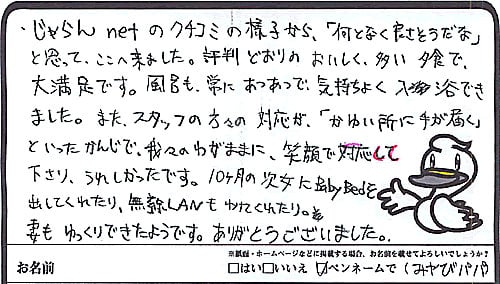 ・じゃらんnetのクチコミの様子から、「何となく良さそうだな」
と思って、ここへ来ました。評判どおりの おいしく、多い 夕食で、
大満足です。風呂も、常に あつあつで、気持ちよく 入浴でき
ました。また、スタッフの方々の 対応が、「かゆい所に手が届く」
といったかんじで、我々のわがままに、笑顔で対応して
下さり、うれしかったです。10ヶ月の次女にBaby Bedを
出してくれたり、無線LANもかしてくれたり。
妻も ゆっくりできたようです。ありがとうございました。
※紙面・ホームページなどに掲載する場合、お名前を載せてよろしいでしょうか?
お名前 □はい □いいえ ☑ペンネームで(みやびパパ)